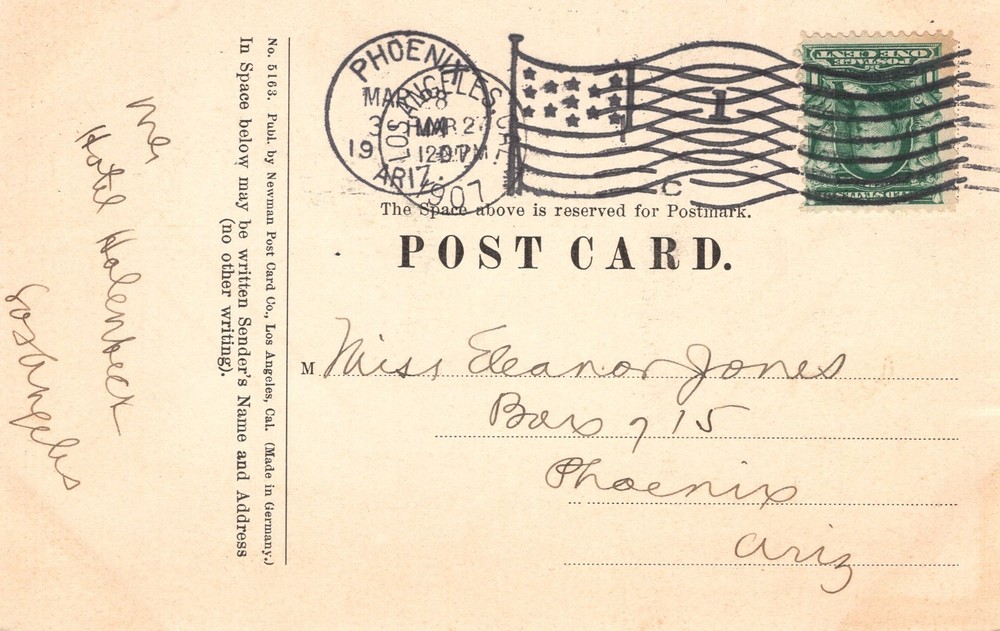 No. 5163. Publ. by Newman Post Card Co., Los Angeles, Cal. (Made in Germany.)
In Space below may be written Sender's Name and Address
(no other writing).
Hotel Holenbeck
Los Angeles
PHOENIX
MAR 28
19
ARIZ.
LOS ANGELES
MAR 27
12
1907
1
C
POSTAGE
ONE CENT
The Space above is reserved for Postmark.
POST CARD.
M Miss Eleanor Jones
Box 715
Phoenix
Ariz